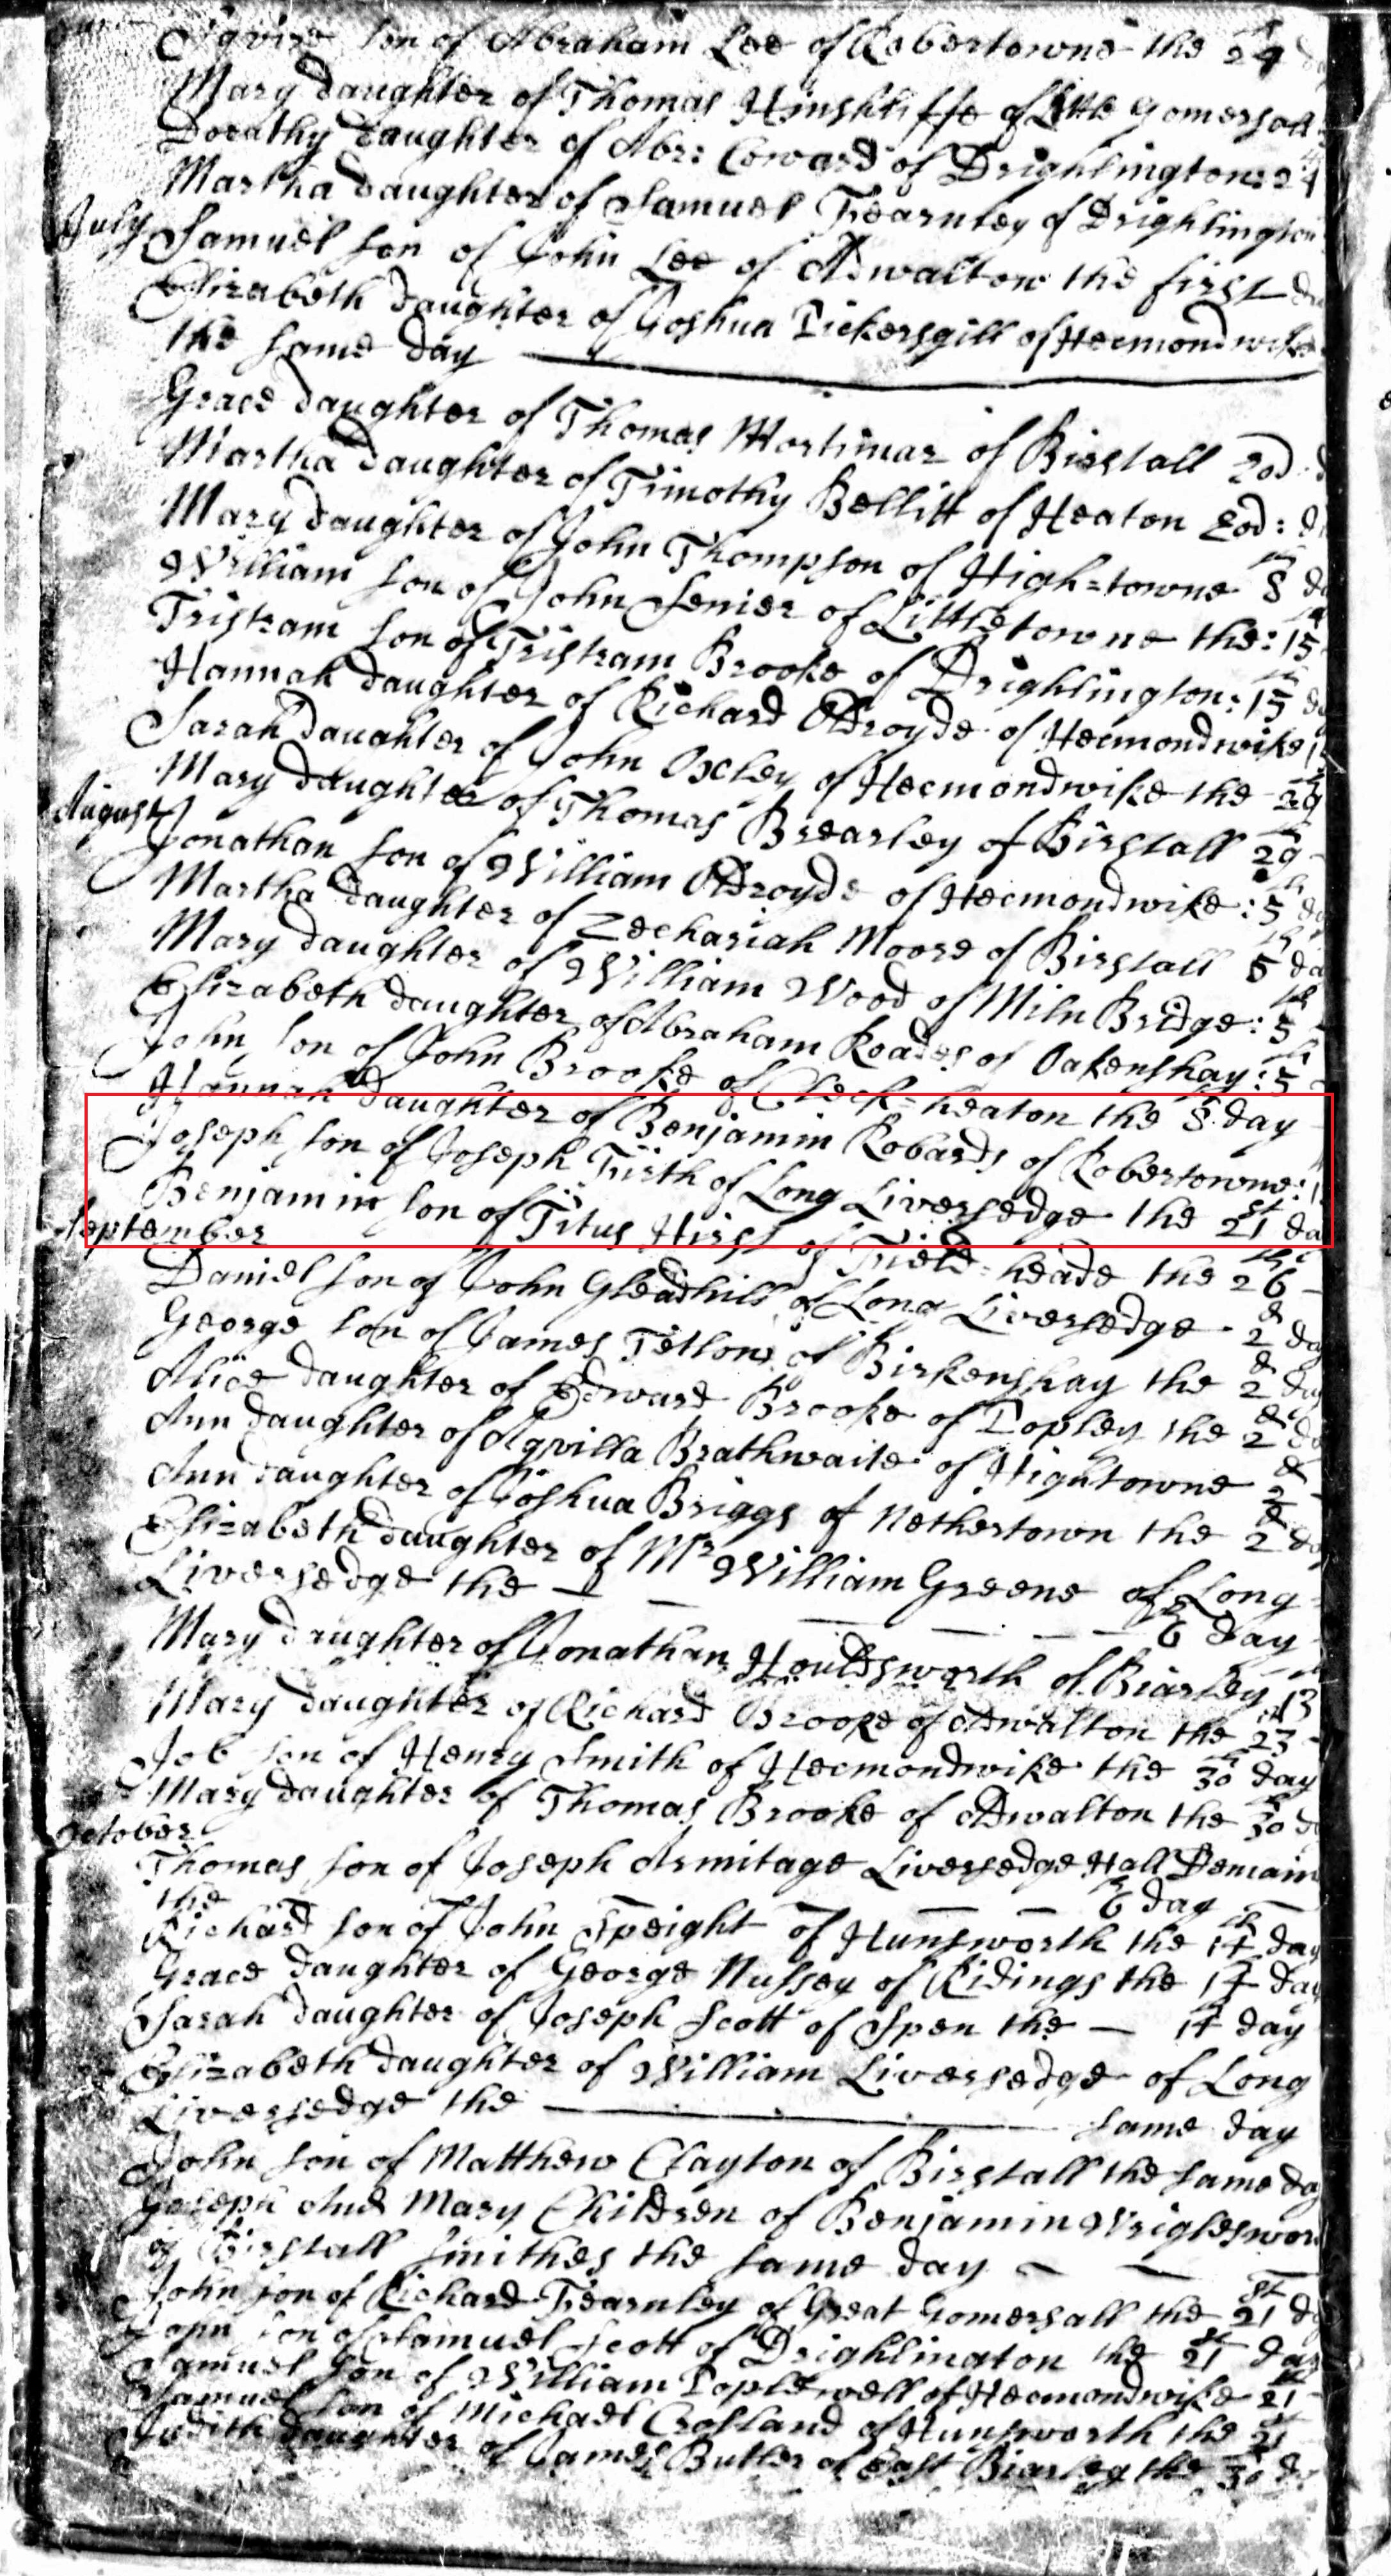 Squire son of Abraham Lee of Robertowne the 29
Mary daughter of Thomas Hinshliffe of Little Gomersall
Dorathy daughter of Abr: Coward of Drightlington: 29
Martha daughter of Samuel Fearnley of Drightlington
July Samuel son of John Lee of Adwalton the first da
Elizabeth daughter of Joshua Pickersgill of Heckmondwike
the same day
Grace daughter of Thomas Mortimar of Birstall 2od: d
Martha daughter of Timothy Bellitt of Heaton 2od: d
Mary daughter of John Thompson of High=towne 8th da
William son of John Senier of Littletowne the: 15th
Tristram son of Tristram Brooke of Drighlington: 15th da
Hannah daughter of Richard Oldroyde of Heckmondwike
Sarah daughter of John Oxley of Heckmondwike the 29th
Mary daughter of Thomas Brearley of Birstall 29th
August Jonathan son of William Oldroyde of Heckmondwike: 5th da
Martha daughter of Zechariah Moore of Birstall 5th da
Mary daughter of William Wood of Miln Bridge: 5th
Elizabeth daughter of Abraham Roades of Oakenshay: 5th
John son of John Brooke of Cleck=heaton the 8 day
Hannah daughter of Benjamin Robards of Robertowne:
Joseph son of Joseph Firth of Long Liversedge the 21st da
Benjamin son of Titus Hirst of Field=heade the 26th
September
Daniel son of John Gleadhill of Long Liversedge 2d da
George son of James Tetlow of Birkenshay the 2d day
Alice daughter of Edward Brooke of Popley the 2d da
Ann daughter of Aqvilla Brathwaite of Hightowne 2d
Ann daughter of Joshua Briggs of Nethertown the 2d da
Elizabeth daughter of Mr William Greene of Long
Liversedge the 6th day
Mary daughter of Jonathan Houldsworth of Biarley 13th
Mary daughter of Richard Brooke of Adwalton the 23d
Job son of Henry Smith of Heckmondwike the 30th day
Mary daughter of Thomas Brooke of Adwalton the 30th d
October
Thomas son of Joseph Armitage Liversedge Hall Demain
the 6th day
Richard son of John Speight of Hunsworth the 14th day
Grace daughter of George Nussey of Ridings the 14 day
Sarah daughter of Joseph Scott of Spen the — 14 day
Elizabeth daughter of William Liversedge of Long
Liversedge the same day
John son of Matthew Clayton of Birstall the same da
Joseph And Mary Children of Benjamin Wrigleswor
of Birstall Smithes the same day
John son of Richard Fearnley of Great Gomersall the 21st d
John son of Samuel Scott of Drighlington the 21st day
Samuel son of William Poplewell of Heckmondwike 21st
Samuel son of Michael Crosland of Hunsworth the 21st
Judith daughter of James Butler of East Biarley the 30 d